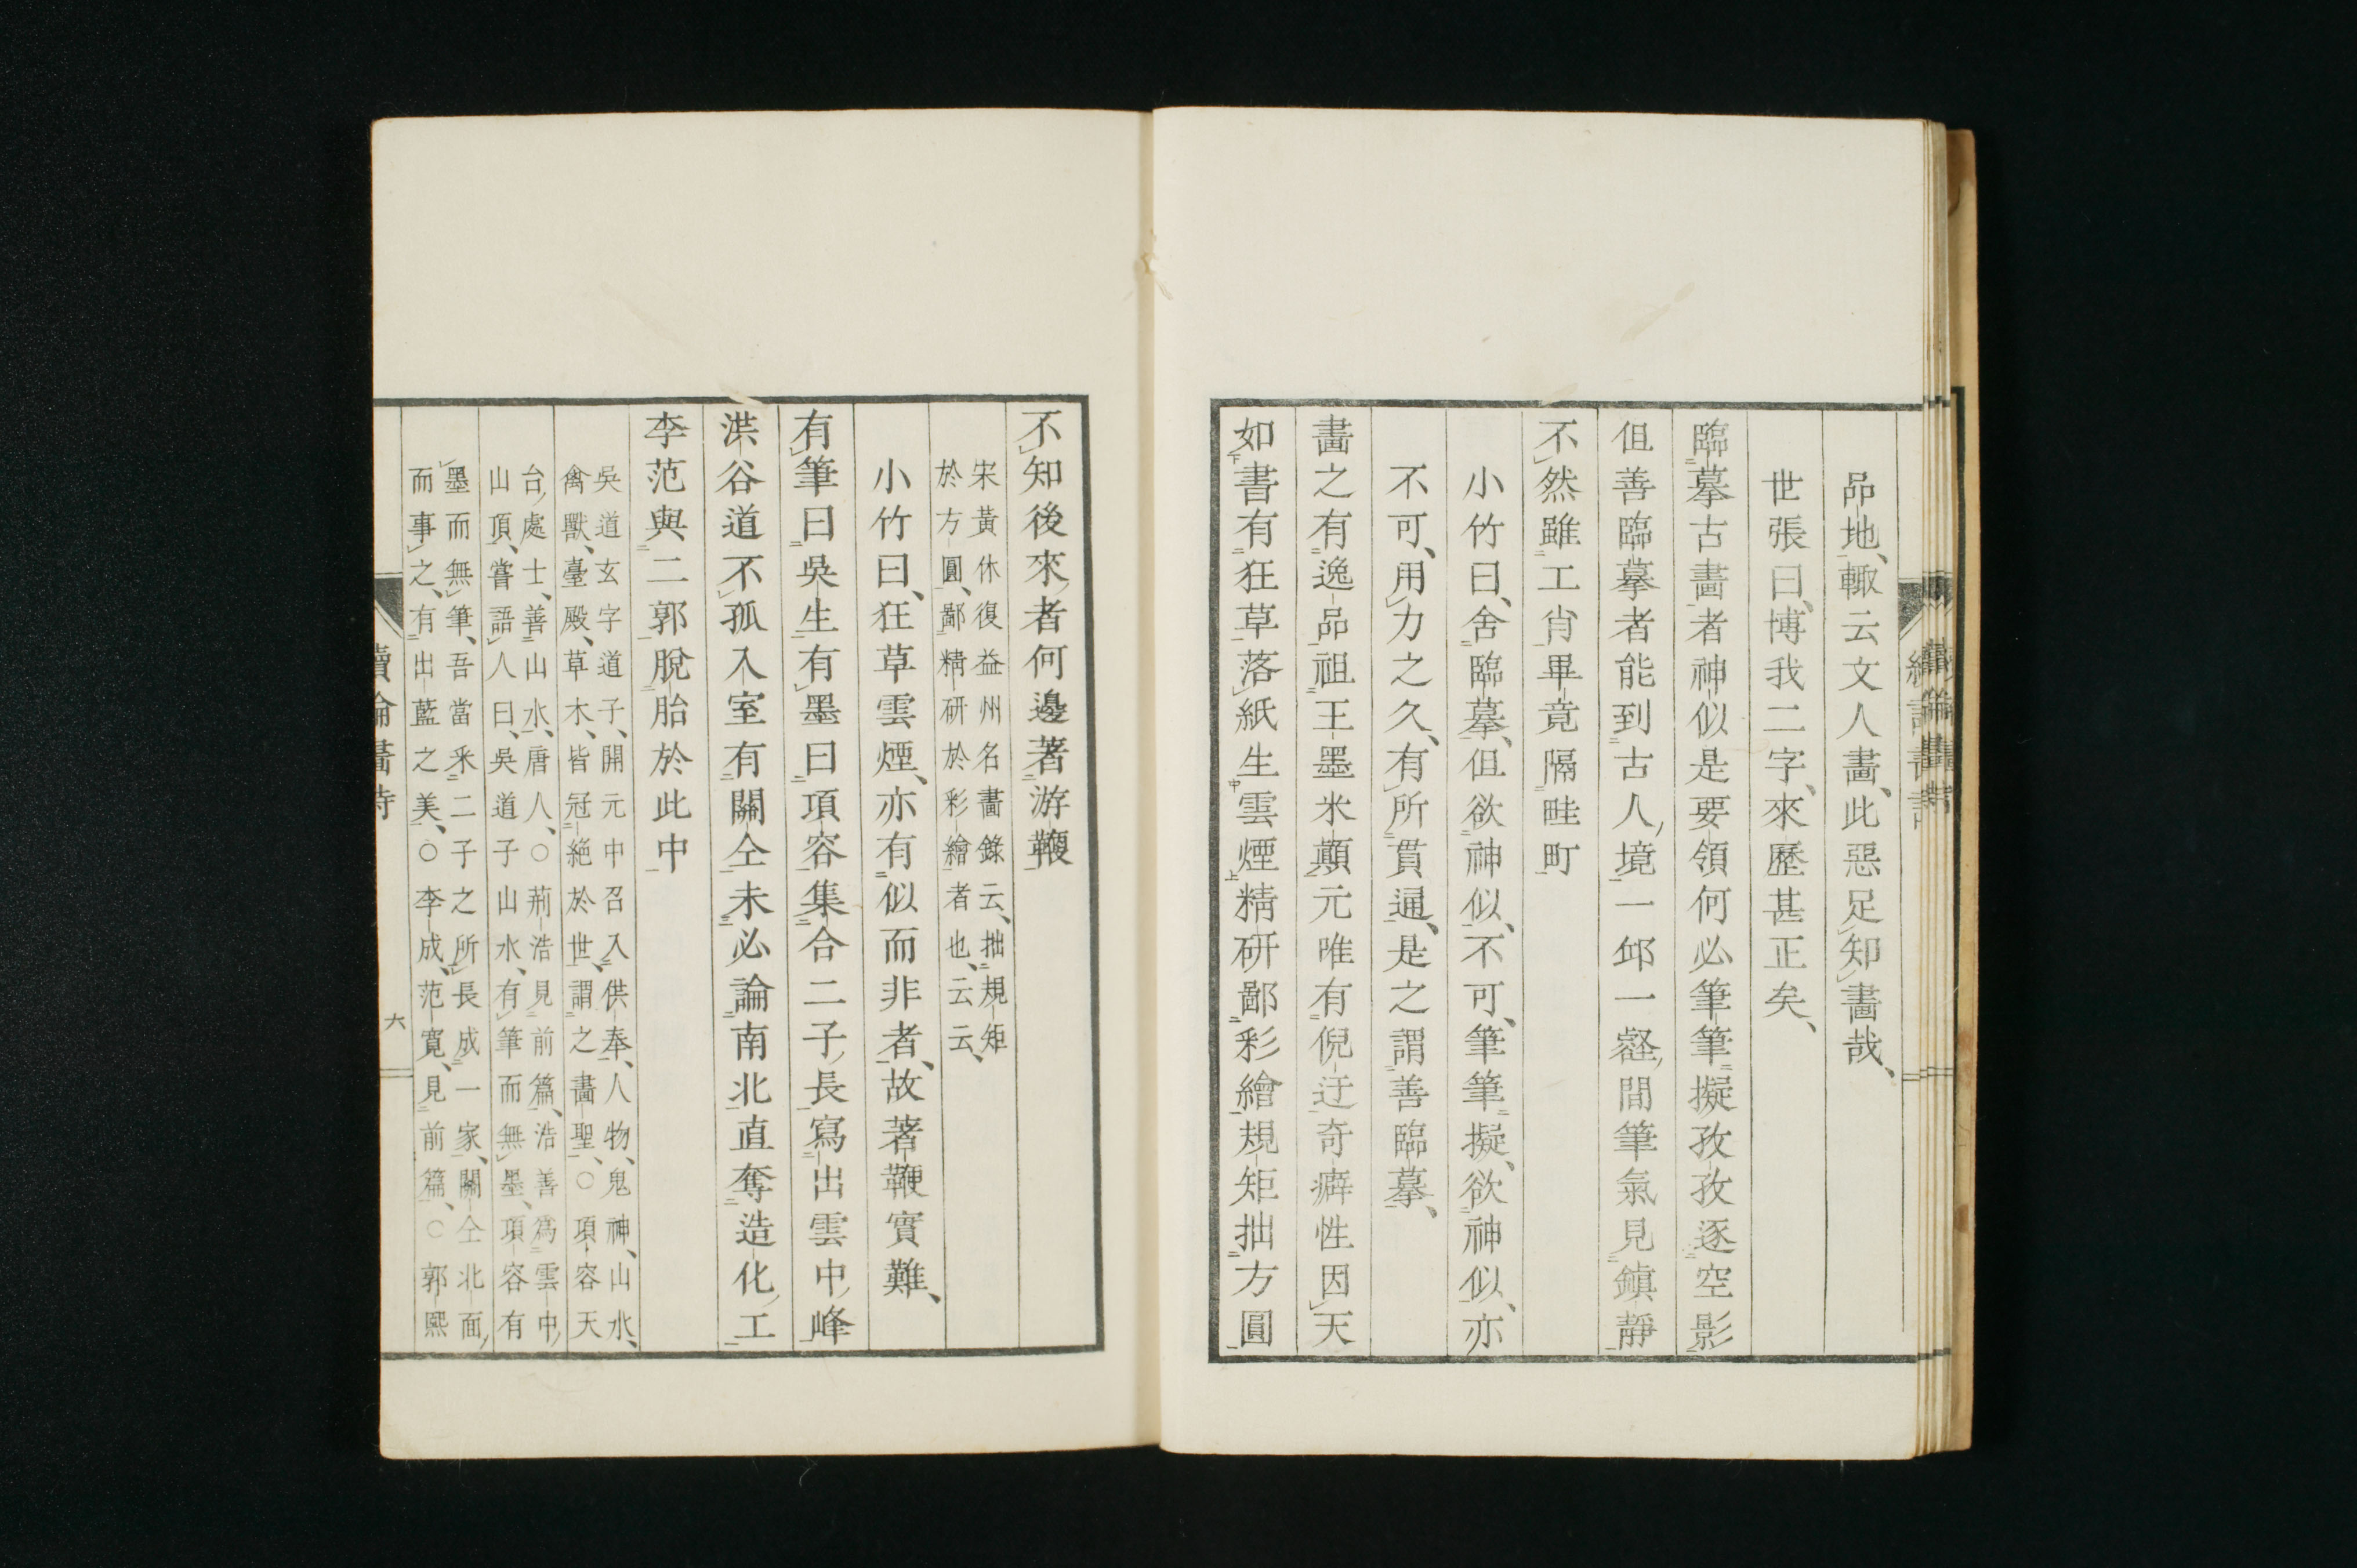 品地、輙云文人畫、此惡足知畫哉、
世張曰、博我二字、來歷甚正矣、
臨摹古畫者神似是要領何必筆筆擬孜孜逐空影
但善臨摹者能到古人境一邱一壑間筆氣見鎮靜
不然雖工肖畢竟隔畦町
小竹曰、舍臨摹、但欲神似、不可、筆筆擬、欲神似、亦
不可、用力之久、有所貫通、是之謂善臨摹、
畫之有逸品祖王墨米顚元唯有倪迂奇癖性因天
如書有狂草落紙生雲煙精研鄙彩繪規矩拙方圓
不知後來者何邊著游鞭
宋黃休復益州名畫錄云、拙規矩
於方圓、鄙精研於彩繪者也、云云、
小竹曰、狂草雲煙、亦有似而非者、故著鞭實難、
有筆曰吳生有墨曰項容集合二子長寫出雲中峰
洪谷道不孤入室有關仝未必論南北直奪造化工
李范與二郭脫胎於此中
吳道玄字道子、開元中召入供奉、人物、鬼神、山水、
禽獸、臺殿、草木、皆冠絕於世、謂之畫聖、○項容天
台處士、善山水、唐人、○荊浩見前篇、浩善爲雲中
山頂、嘗語人曰、吳道子山水、有筆而無墨、項容有
墨而無筆、吾當釆二子之所長成一家、關仝北面
而事之、有出藍之美、○李成、范寬、見前篇、○郭熙
六